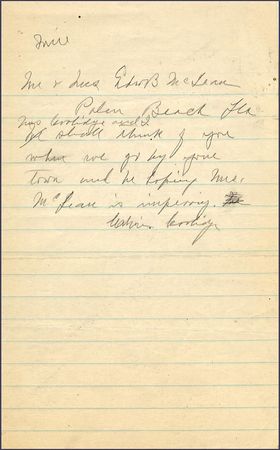 Wire
Mr & Mrs Edw B McLean
Palm Beach Fla
Mrs Coolidge and I
shall think of you
when we go by your
town and be hoping Mrs.
McLean is improving.
Calvin Coolidge